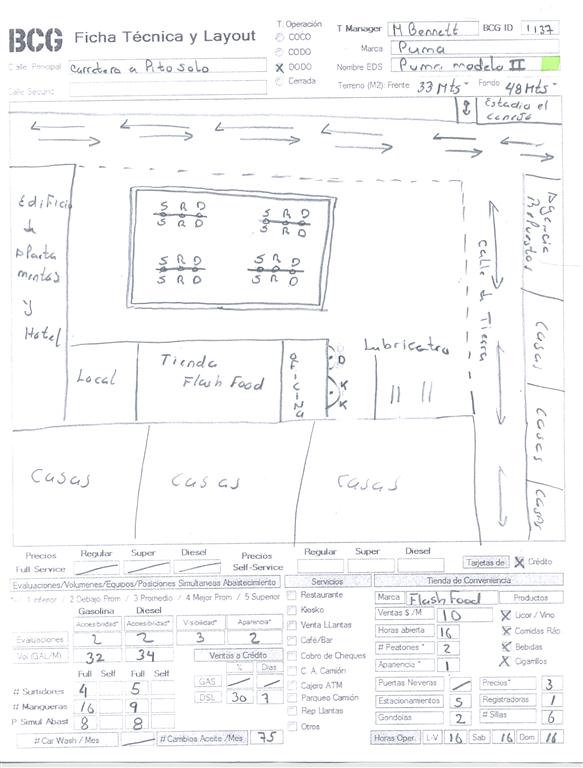 BCG Ficha Técnica y Layout
T. Operación
COCO
CODO
X DODO
Cerrada
T Manager M Bennett BCG ID 1137
Marca Puma
Nombre EDS Puma modelo II
Calle Principal Carretera a Pito Solo
Calle Secund
Terreno (M2): Frente 33 Mts Fondo 48 Mts
Estadio el
Edificio
de
Aparta
mentos
y
Hotel
S R D
S R D
S R D
S R D
S R D
S R D
S R D
S R D
Calle de Tierra
Agencia
Repuestos
Casas
Casas
Casas
Local
Tienda
Flash Food
OFICINA
D
K
K
Lubricentro
Casas
Casas
Casas
Precios Regular Super Diesel Precios Regular Super Diesel
Full Service Self-Service Tarjetas de X Crédito
Evaluaciones/Volumenes/Equipos/Posiciones Simultaneas Abastecimiento
* 1 Inferior / 2 Debajo Prom / 3 Promedio / 4 Mejor Prom / 5 Superior
Gasolina Diesel
Accesibilidad* Accesibilidad* Visibilidad* Apariencia*
Evaluaciones 2 2 3 2
Vol (GAL/M) 32 34 Ventas a Crédito
Full Self Full Self % Dias
# Surtidores 4 5 GAS
# Mangueras 16 9 DSL 30 7
P Simul Abast 8 8
# Car Wash / Mes # Cambios Aceite /Mes 75
Servicios
Restaurante
Kiosko
Venta LLantas
Café/Bar
Cobro de Cheques
C. A. Camión
Cajero ATM
Parqueo Camión
Rep Llantas
Otros
Tienda de Conveniencia
Marca Flash Food Productos
Ventas $ /M 10 X Licor / Vino
Horas abierta 16 X Comidas Ráp
# Peatones * 2 X Bebidas
Apariencia * 1 X Cigarrillos
Puertas Neveras Precios* 3
Estacionamientos 5 Registradoras 1
Gondolas 2 # Sillas 6
Horas Oper. L-V 16 Sab 16 Dom 16